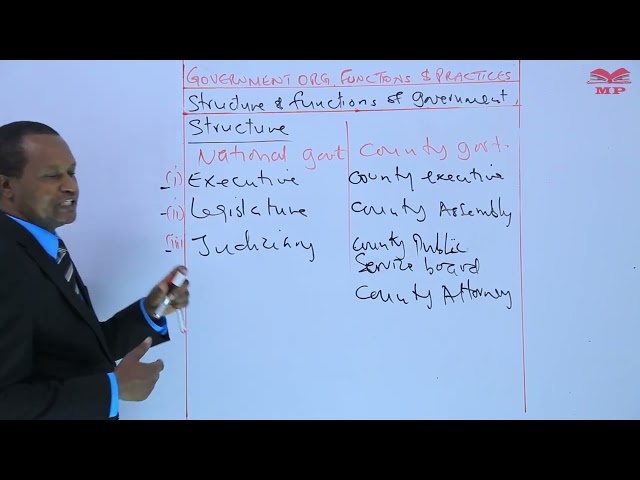 GOVERNMENT ORG. FUNCTIONS & PRACTICES
Structure & functions of government.
Structure
National govt
County govt.
(i) Executive
County executive
(ii) Legislature
County Assembly
(iii) Judiciary
County Public
Service board
County Attorney
MP